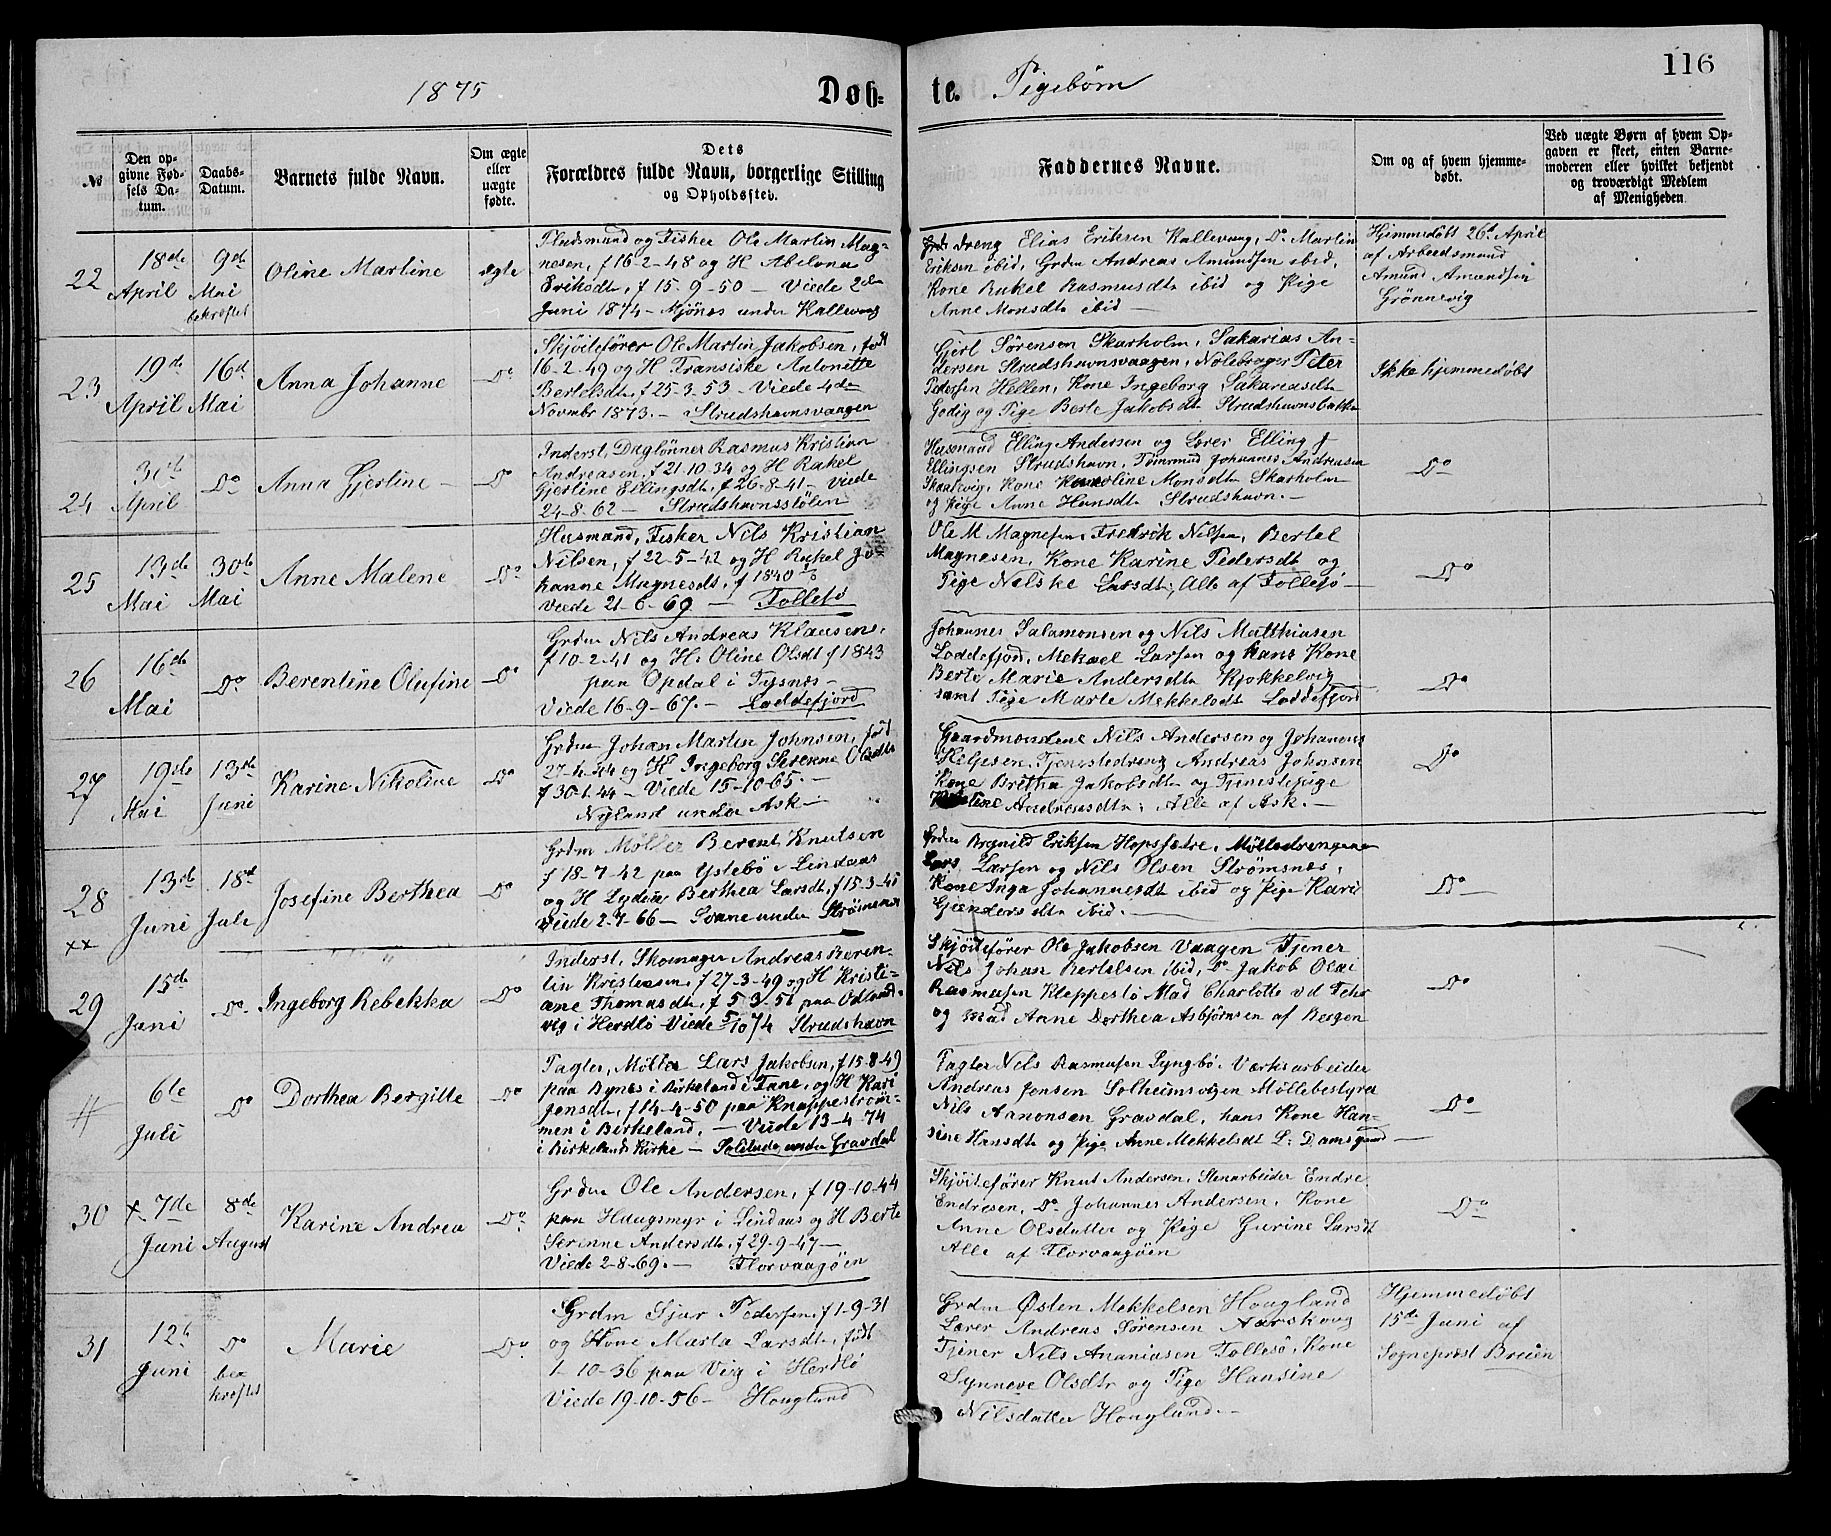 116
1875 Døb- te. Pigebørn
№
Den op-
givne Fød-
sels Da-
tum.
Daabs-
Datum.
Barnets fulde Navn.
Om ægte
eller
uægte
fødte.
Dets
Forældres fulde Navn, borgerlige Stilling
og Opholdssted.
Faddernes Navne.
Om og af hvem hjemme-
døbt.
Ved uægte Børn af hvem Op-
gaven er skeet, enten Barne-
moderen eller hvilket bekjendt
og troværdigt Medlem
af Menigheden
22
18de
April
9de
Mai
bekræftet
Oline Martine
ægte
Pladsmand og Fisker Ole Martin Mag-
nesen, f 16-2-48 og H Abelona
Eriksdtr, f 15-9-50 — Viede 2den
Juni 1874 — Mjönæs under Kallevaag
Dreng Elias Eriksen Kallevaag, Do Martin
Eriksen ibid, Grdm Andreas Amundsen ibid,
Kone Rakel Rasmusdtr ibid og Pige
Anne Monsdtr ibid —
Hjemmedöbt 26d April
af Arbeidsmand
Amund Amundsen
Grönnevig
23
19de
April
16d
Mai
Anna Johanne
Do
Skjöitefører Ole Martin Jakobsen, född
16-2-49 og H Fransiske Antonette
Bertelsdtr, f 25-3-53 — Viede 4de
Novmbr 1873. — Strudshavnsvaagen
Gjert Sörensen Skarholm, Sakarias An-
dersen Strudshavnsvaagen, Peter
Pedersen Hellen, Kone Ingeborg Sakariasdtr
Godig og Pige Berte Jakobsdtr Strudshavnsbakke
Ikke hjemmedöbt
24
30te
April
Do
Anna Gjertine —
Do
Inderst, Daglönner Rasmus Kristian
Andreasen, f 21-10-34 og H Rakel
Gjertine Ellingsdtr, f 26-8-41 — Viede
24-8-62 — Strudshavnsstölen
Husmand Elling Andersen og Lærer Elling J
Ellingsen Strudshavn, Tömmrmd Johannes Andreasen
Skaalevig, Kone Karoline Monsdtr Skarholm
og Pige Anne Hansdtr Strudshavn. —
Do
25
13de
Mai
30te
Mai
Anne Malene
Do
Husmand, Fisker Nils Kristian
Nilsen, f 22-5-42 og H Rakel Jo-
hanne Magnesdt, f 1840
Viede 21-6-69 — Follesö
Ole M Magnesen, Fredrik Nilsen, Bertel
Magnesen, Kone Karine Pedersdt og
Pige Nelske Larsdtr, Alle af Follesö —
Do
26
16de
Mai
Do
Berentine Olufine
Do
Grdm Nils Andreas Klausen,
f 10-2-41 og H. Oline Olsdt f 1843
paa Opdal i Tysnæs —
Viede 16-9-67. — Loddefjord
Johannes Salamonsen og Nils Matthiasen
Loddefjord, Mekael Larsen og hans Kone
Berte Marie Andersdtr Kjökkelvig
samt Pige Marte Mekkelsdt Loddefjord
Do
27
19de
Mai
13de
Juni
Karine Nikoline
Do
Grdm Johan Martin Johnsen, född
27-4-44 og H Ingeborg Serenne Olsdtr
f 30-1-44 — Viede 15-10-65. —
Nyland under Ask —
Gaardmændene Nils Andersen og Johannes
Heljesen, Tjenestedreng Andreas Johnsen
Kone Britha Jakobsdtr og Tjenestepige
Andreasdtr, Alle af Ask. —
Do
28
××
13de
Juni
18de
Juli
Josefine Berthea
Do
Grdm Möller Berent Knutsen
f 18-7-42 paa Ystebö i Lindaas
og H Lydia Berthea Larsdt, f 15-3-45
Viede 2-7-66 — under Strömsnæs
Grdm Eriksen Hopsfætre, Mölledrengene
Lars Larsen og Nils Olsen Strömsnes,
Kone Inga Johannesdt ibid og Pige Kari
ibid. —
Do
29
15de
Juni
Do
Ingeborg Rebekka
Do
Inderst, Skomager Andreas Beren-
tin Kristensen, f 27-3-49 og H Kristi-
ane Thomasdtr, f 5-3-51 paa
vig i Herdlö Viede 5/10 74 Strudshavn
Skjöitefører Ole Jakobsen Vaagen Tjener
Nils Johan Bertelsen ibid, Do Jakob Olai
Rasmusen Kleppestö Mad Charlotte v d Fehr
og Mad Anne Dorthea Asbjörnsen af Bergen
Do
#
6te
Juli
Do
Dorthea Bergitte
Do
Pagter, Möller Lars Jakobsen, f 15-8-49
paa Bynes i Birkeland i Fane, og H Kari
Jensdtr, f 14-4-50 paa Knappeström-
men i Birkeland. — Viede 13-4-74
i Birkelands Kirke — Solitude under Gravdal
Pagter Nils Rasmusen Lyngbö, Værksarbeider
Andreas Jensen Solheimsvigen Möllebestyrer
Nils Aanonsen Gravdal, hans Kone Han-
sine Hansdtr og Pige Anne Mekkelsdt L. Damsgaard —
Do
30
× 7de
Juni
8de
August
Karine Andrea
Do
Grdm Ole Andersen, f 19-10-44
paa Haugsmyr i Lindaas og H Berte
Serenne Andersdtr, f 29-9-47 —
Viede 2-8-69. — Florvaagöen
Skjöitefører Knut Andersen, Stenarbeider Endre
Endresen, Do Johannes Andersen, Kone
Anne Olsdatter og Pige Gurine Larsdt
Alle af Florvaagöen
Do
31
12te
Juni
Do
bek
kræftet
Marie
Do
Grdm Sjur Pedersen, f 1-9-31
og Kone Marta Larsdtr, född
1-10-36 paa Vig i Herdlö
Viede 19-10-56 — Hougland
Grdm Østen Mekkelsen Hougland
Lærer Andreas Sörensen Aarskoug
Tjener Nils Ananiasen Follesö, Kone
Synneve Olsdtr og Pige Hansine
Nilsdatter Hougland. —
Hjemmedöbt
15de Juni af
Sogneprest Breien